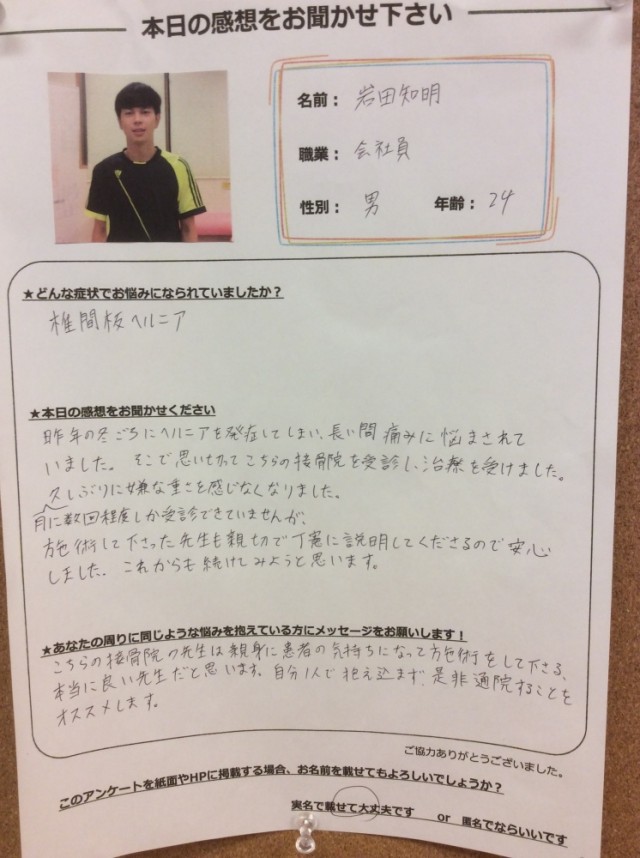 本日の感想をお聞かせ下さい
名前： 岩田知明
職業： 会社員
性別： 男 年齢： 24
★どんな症状でお悩みになられていましたか？
椎間板ヘルニア
★本日の感想をお聞かせください
昨年の冬ごろにヘルニアを発症してしまい、長い間痛みに悩まされて
いました。そこで思い切ってこちらの接骨院を受診し、治療を受けました。
久しぶりに嫌な重さを感じなくなりました。
月に数回程度しか受診できていませんが、
施術して下さった先生も親切で丁寧に説明してくださるので安心
しました。これからも続けてみようと思います。
★あなたの周りに同じような悩みを抱えている方にメッセージをお願いします！
こちらの接骨院の先生は親身に患者の気持ちになって施術をして下さる、
本当に良い先生だと思います。自分1人で抱え込まず、是非通院することを
オススメします。
ご協力ありがとうございました。
このアンケートを紙面やHPに掲載する場合、お名前を載せてもよろしいでしょうか？
実名で載せて大丈夫です or 匿名でならいいです